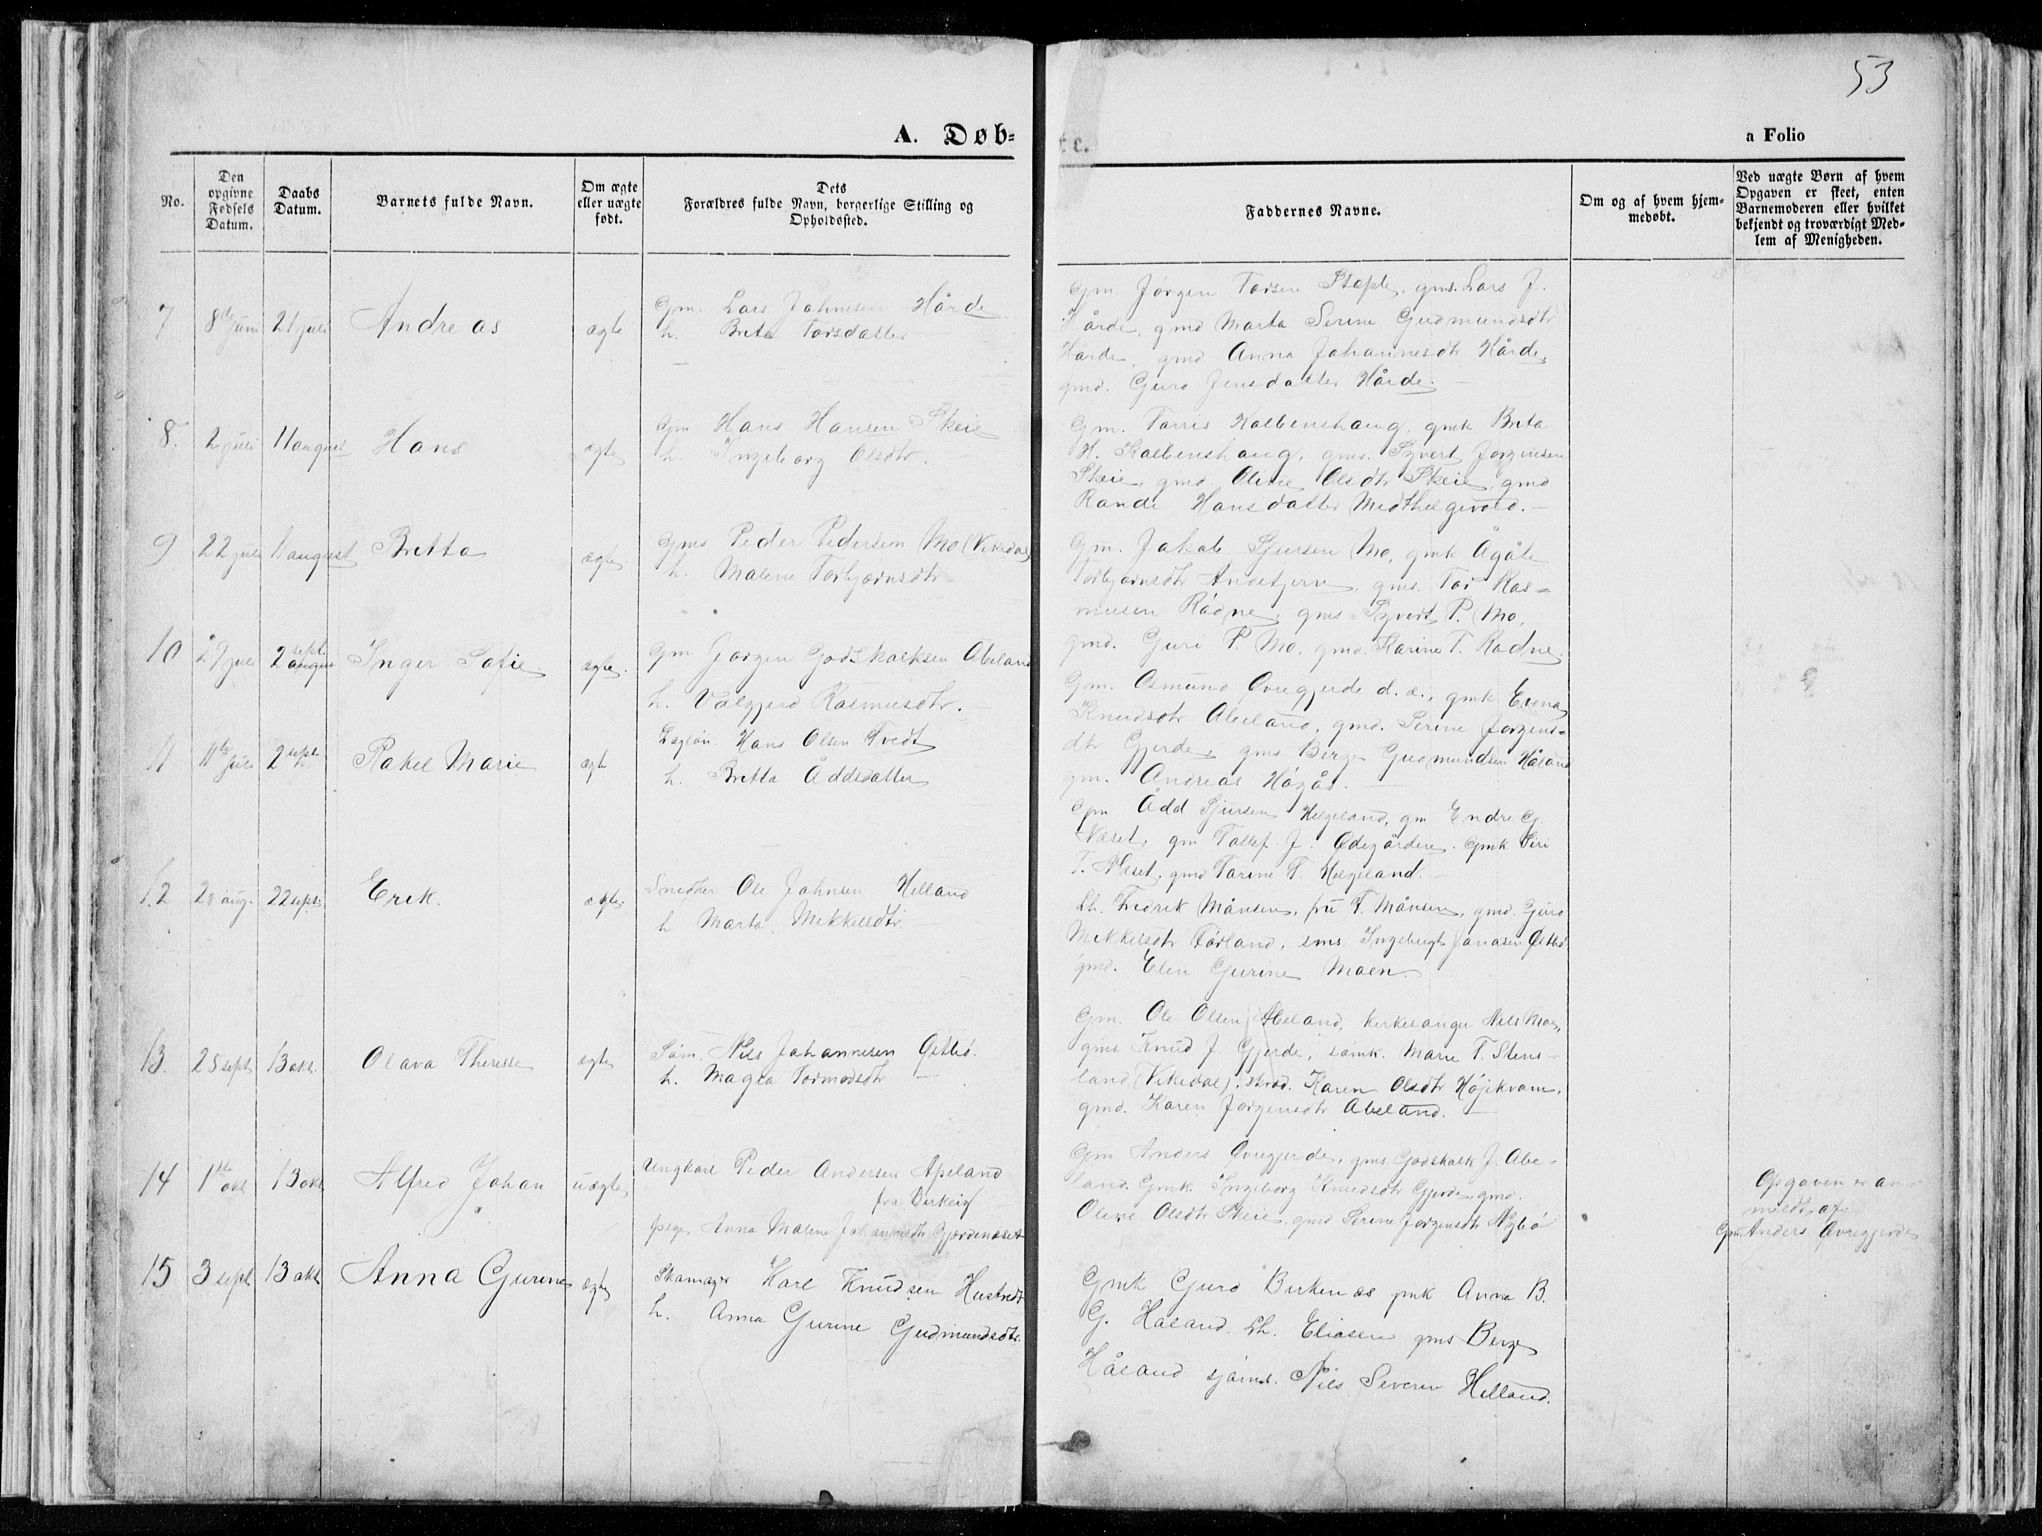 53
A. Døb-
te.
a Folio
No.
Den opgivne Fødsels Datum.
Daabs Datum.
Barnets fulde Navn.
Om ægte eller uægte født.
Dets Forældres fulde Navn, borgerlige Stilling og Opholdssted.
Faddernes Navne.
Om og af hvem hjemmedøbt.
Ved uægte Børn af hvem Opgaven er skeet, enten Barnemoderen eller hvilket bekjendt og troværdigt Medlem af Menigheden.
7 8de juni 21 juli Andreas ægte
Gm. Lars Johnesen Hårde
h. Brita Torsdatter
Gm. Jørgen Torsen Stople, gms. Lars J.
Hårde, gmd Marta Serine Gudmundsdtr
Hårde, gmd Anna Johannesdtr Hårde,
gmd. Guro Jensdatter Hårde.
8. 2 juli 11 august Hans ægte
Gm Hans Hansen Skeie
h. Ingeborg Olsdtr.
Gm. Tarris Kalbenshaug, gmk Brita
H. Kalbenshaug, gms. Syvert Jørginsen
Skeie, gmd. Oline Olsdtr Skeie, gmd
Rande Hansdatter Medthelgevold.
9 22 juli 11 august Britta ægte
Gms Peder Pedersen Mo (Vikedal)
h. Malene Torbjørnsdtr
Gm. Jakob Sjursen Mo, gmk Ågåte
Torbjørnsdtr, gms. Tor Ras=
musen Rødne, gms Syvert P. Mo,
gmd. Guri P. Mo, gmd. Karine T. Rødne.
10 29 juli 2 sept. august Inger Sofie ægte.
Gm Jørgen Godskalksen Abeland
h. Valgjerd Rasmusdtr.
Gm. Osmund Øvregjerde d. æ., gmk Evena
Knudsdtr Abeland, gmd. Serine Jørgens=
dtr Gjerde, gms Berge Gudmundsen Håland
gm. Andreas Høgås.
11 11te juli 2 sept Rakel Marie ægt
Dagløn. Hans Olsen Tvedt
h. Britta Åddsdatter
Gm Ådd Sjursen Helgeland, gm Endre G.
Næset, gm Tollef J. Ødegården. Gmk Siri
T. Næset, gmd Tarine T. Helgeland.
12 28 aug. 22 sept Erik. ægte
Snedker Ole Johnsen Helland
h Marta Mikkelsdtr
Lh. Fredrik Månsen, fru T. Månsen, gmd. Guro
Mikkelsdtr Førland, sms. Ingebrigt Jonasen Østbø
gmd. Elen Gurine Moen.
13. 25 sept 13 okt. Olava Therese ægte
Søm. Nils Johannesen Østbø.
h. Magla Tormodsdtr
Gm. Ole Olsen Abeland, kirkesanger Nils Moe,
gms Knud J. Gjerde, sømk. Marie T. Stens=
land (Vikedal), Karen Olsdtr Højekvam,
gmd. Karen Jørgensdtr Abeland.
14 1ste okt 13 okt Alfred Johan uægte
Ungkarl Peder Andersen Apeland
fra
pige Anna Malene Johannesdtr Gjerdenæset
Gm Anders Øvregjerde, gms Godskalk J. Abe=
land. Gmk. Ingeborg Knudsdtr Gjerde, gmd.
Oline Olsdtr Skeie, gmd Serine Jørgensdtr Nybø
Opgaven er an
meldt af
Gm Anders Øvregjerde
15 3 sept 13 okt Anna Gurine ægte
Skomager Karl Knudsen Hustvedt
h. Anna Gurine Gudmundsdtr.
Gmk Guro Birkenæs pmk Anna B.
G. Håland. Lh. Eliasen gms Berge
Håland sjøms. Nils Severin Helland.